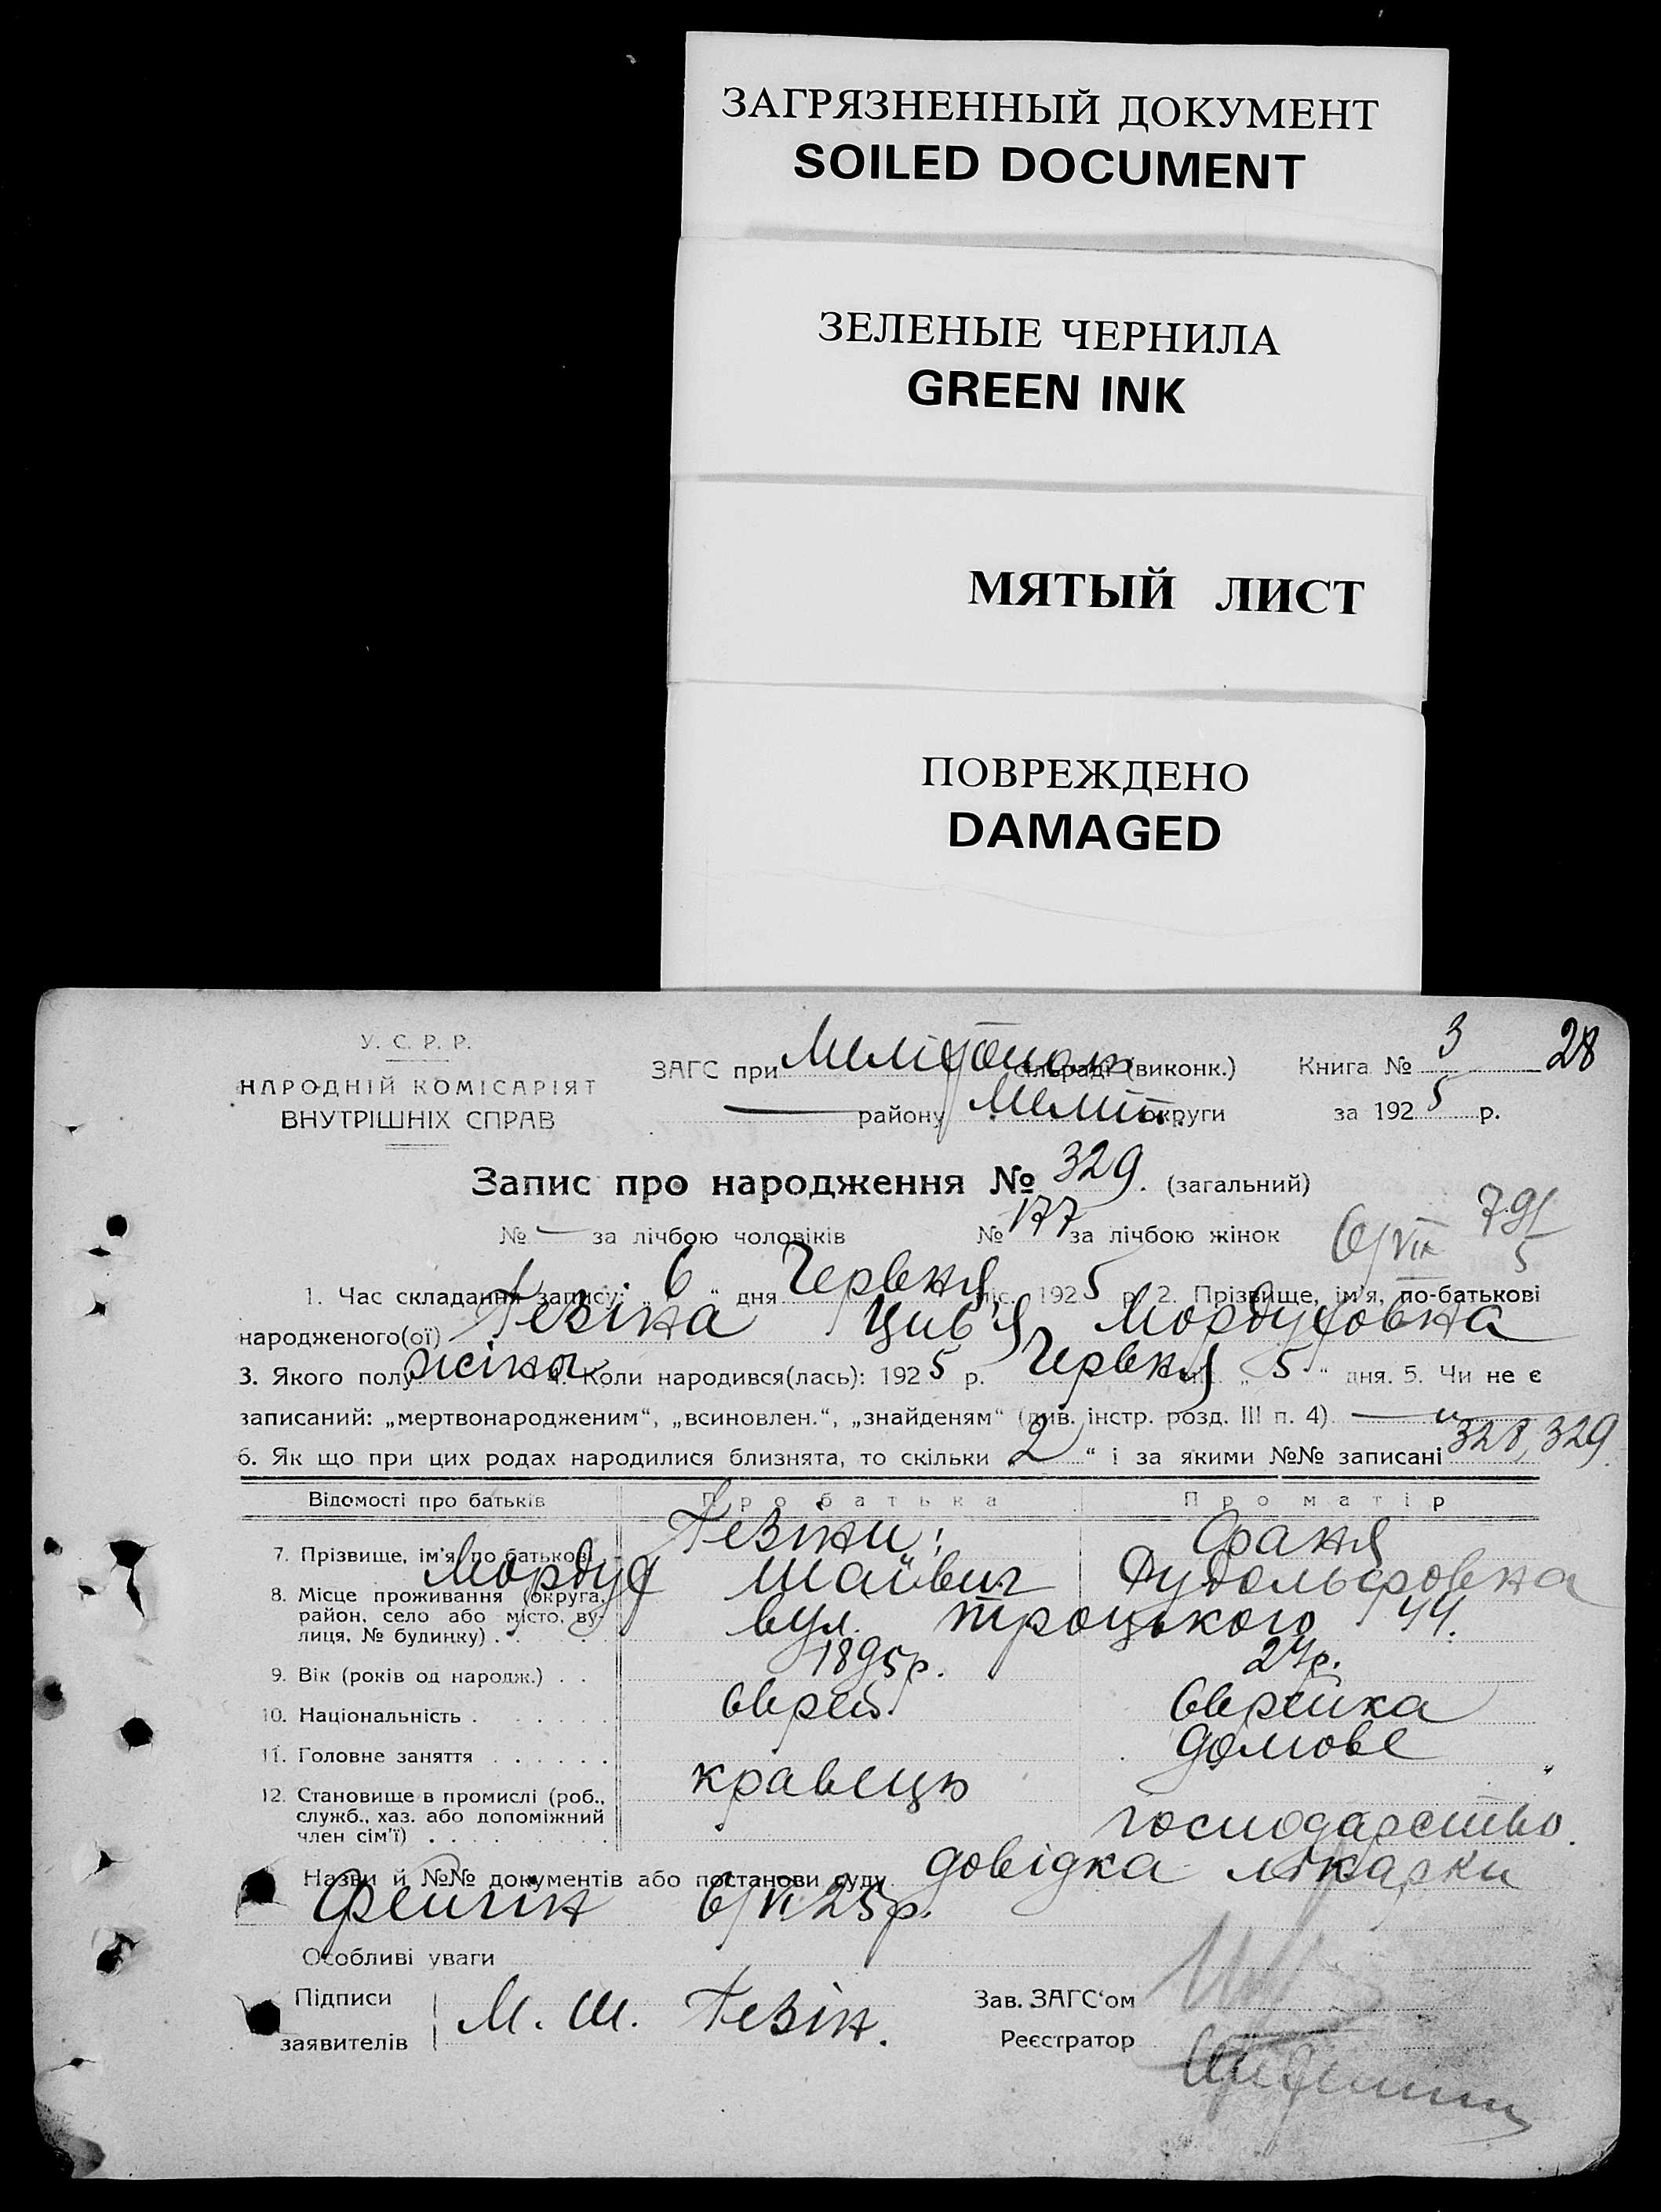 ЗАГРЯЗНЕННЫЙ ДОКУМЕНТ
SOILED DOCUMENT
ЗЕЛЕНЫЕ ЧЕРНИЛА
GREEN INK
МЯТЫЙ ЛИСТ
ПОВРЕЖДЕНО
DAMAGED
У. С. Р. Р.
НАРОДНІЙ КОМІСАРІЯТ
ВНУТРІШНІХ СПРАВ
ЗАГС при Мелітополь сільраді (виконк.) Книга № 3 28
— району Меліт. округи за 1925 р.
Запис про народження № 329. (загальний)
№ — за лічбою чоловіків № 177 за лічбою жінок
6/VII 791/5
1. Час складання запису: „ 6 “ дня Червня міс. 1925 р. 2. Прізвище, ім'я, по-батькові
народженого(ої) Гезіна Цив'я Мордуховна
3. Якого полу жіноч. 4. Коли народився(лась): 1925 р. Червня міс. „ 5 “ дня. 5. Чи не є
записаний: „мертвонародженим“, „всиновлен.“, „знайденям“ (див. інстр. розд. III п. 4) —
6. Як що при цих родах народилися близнята, то скільки „ 2 “ і за якими №№ записані 328, 329.
Відомості про батьків Про батька Про матір
7. Прізвище, ім'я, по батькові Гезіни: Фаня
Мордух Шайвич Рудольфовна
8. Місце проживання (округа, район, село або місто, вулиця, № будинку) . . вул. Троцького 44.
9. Вік (років од народж.) . . 1895р. 27р.
10. Національність . . . . . Єврей Єврейка
11. Головне заняття . . . . . . кравець домове
12. Становище в промислі (роб., служб., хаз. або допоміжний член сім'ї) . . . . господарство.
Назви й №№ документів або постанови суду довідка лікарки
Фейгін 6/VI 25р.
Особливі уваги
Підписи
заявителів М. Ш. Гезін.
Зав. ЗАГС'ом
Реєстратор